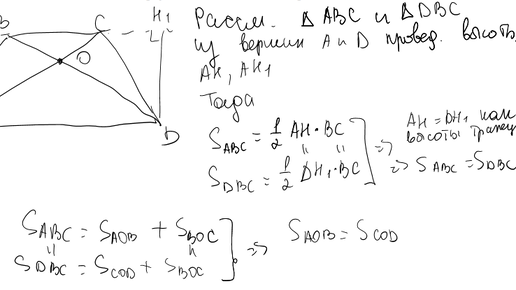 B
C
H₁
O
D
Рассм. Δ ABC и ΔDBC
из вершин A и D провед. высоты
AH, AH₁
Тогда
S_ABC = 1/2 AH · BC
S_DBC = 1/2 DH₁ · BC
=> AH = DH₁ как
высоты трапец
=> S_ABC = S_DBC
S_ABC = S_AOB + S_BOC
S_DBC = S_COD + S_BOC
=> S_AOB = S_COD